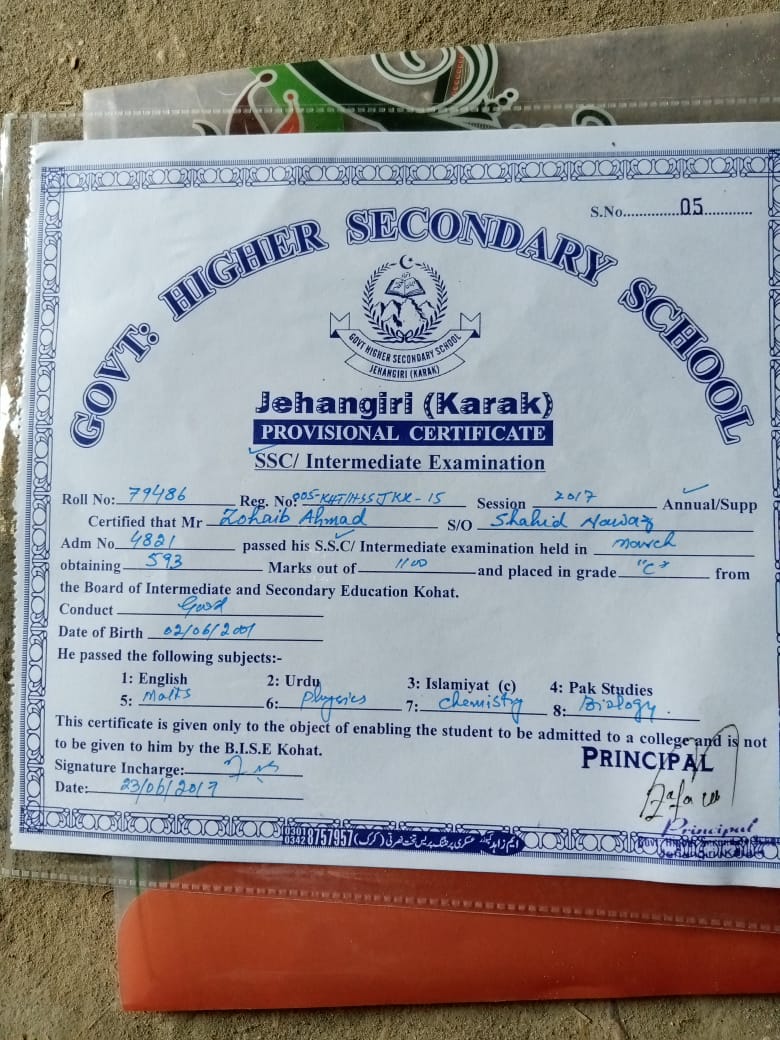 S.No. 05
GOVT: HIGHER SECONDARY SCHOOL
GOVT HIGHER SECONDARY SCHOOL
JEHANGIRI (KARAK)
Jehangiri (Karak)
PROVISIONAL CERTIFICATE
SSC/ Intermediate Examination
Roll No: 79486 Reg. No: 005-KHT/HSSJKK-15 Session 2017 Annual/Supp
Certified that Mr Zohaib Ahmad S/O Shahid Nawaz
Adm No 4821 passed his S.S.C/ Intermediate examination held in March
obtaining 593 Marks out of 1100 and placed in grade "C" from
the Board of Intermediate and Secondary Education Kohat.
Conduct Good
Date of Birth 02/06/2001
He passed the following subjects:-
1: English 2: Urdu 3: Islamiyat (c) 4: Pak Studies
5: Maths 6: Physics 7: Chemistry 8: Biology
This certificate is given only to the object of enabling the student to be admitted to a college and is not
to be given to him by the B.I.S.E Kohat.
PRINCIPAL
Signature Incharge:
Date: 23/06/2017
Principal
0301
0342 8757957